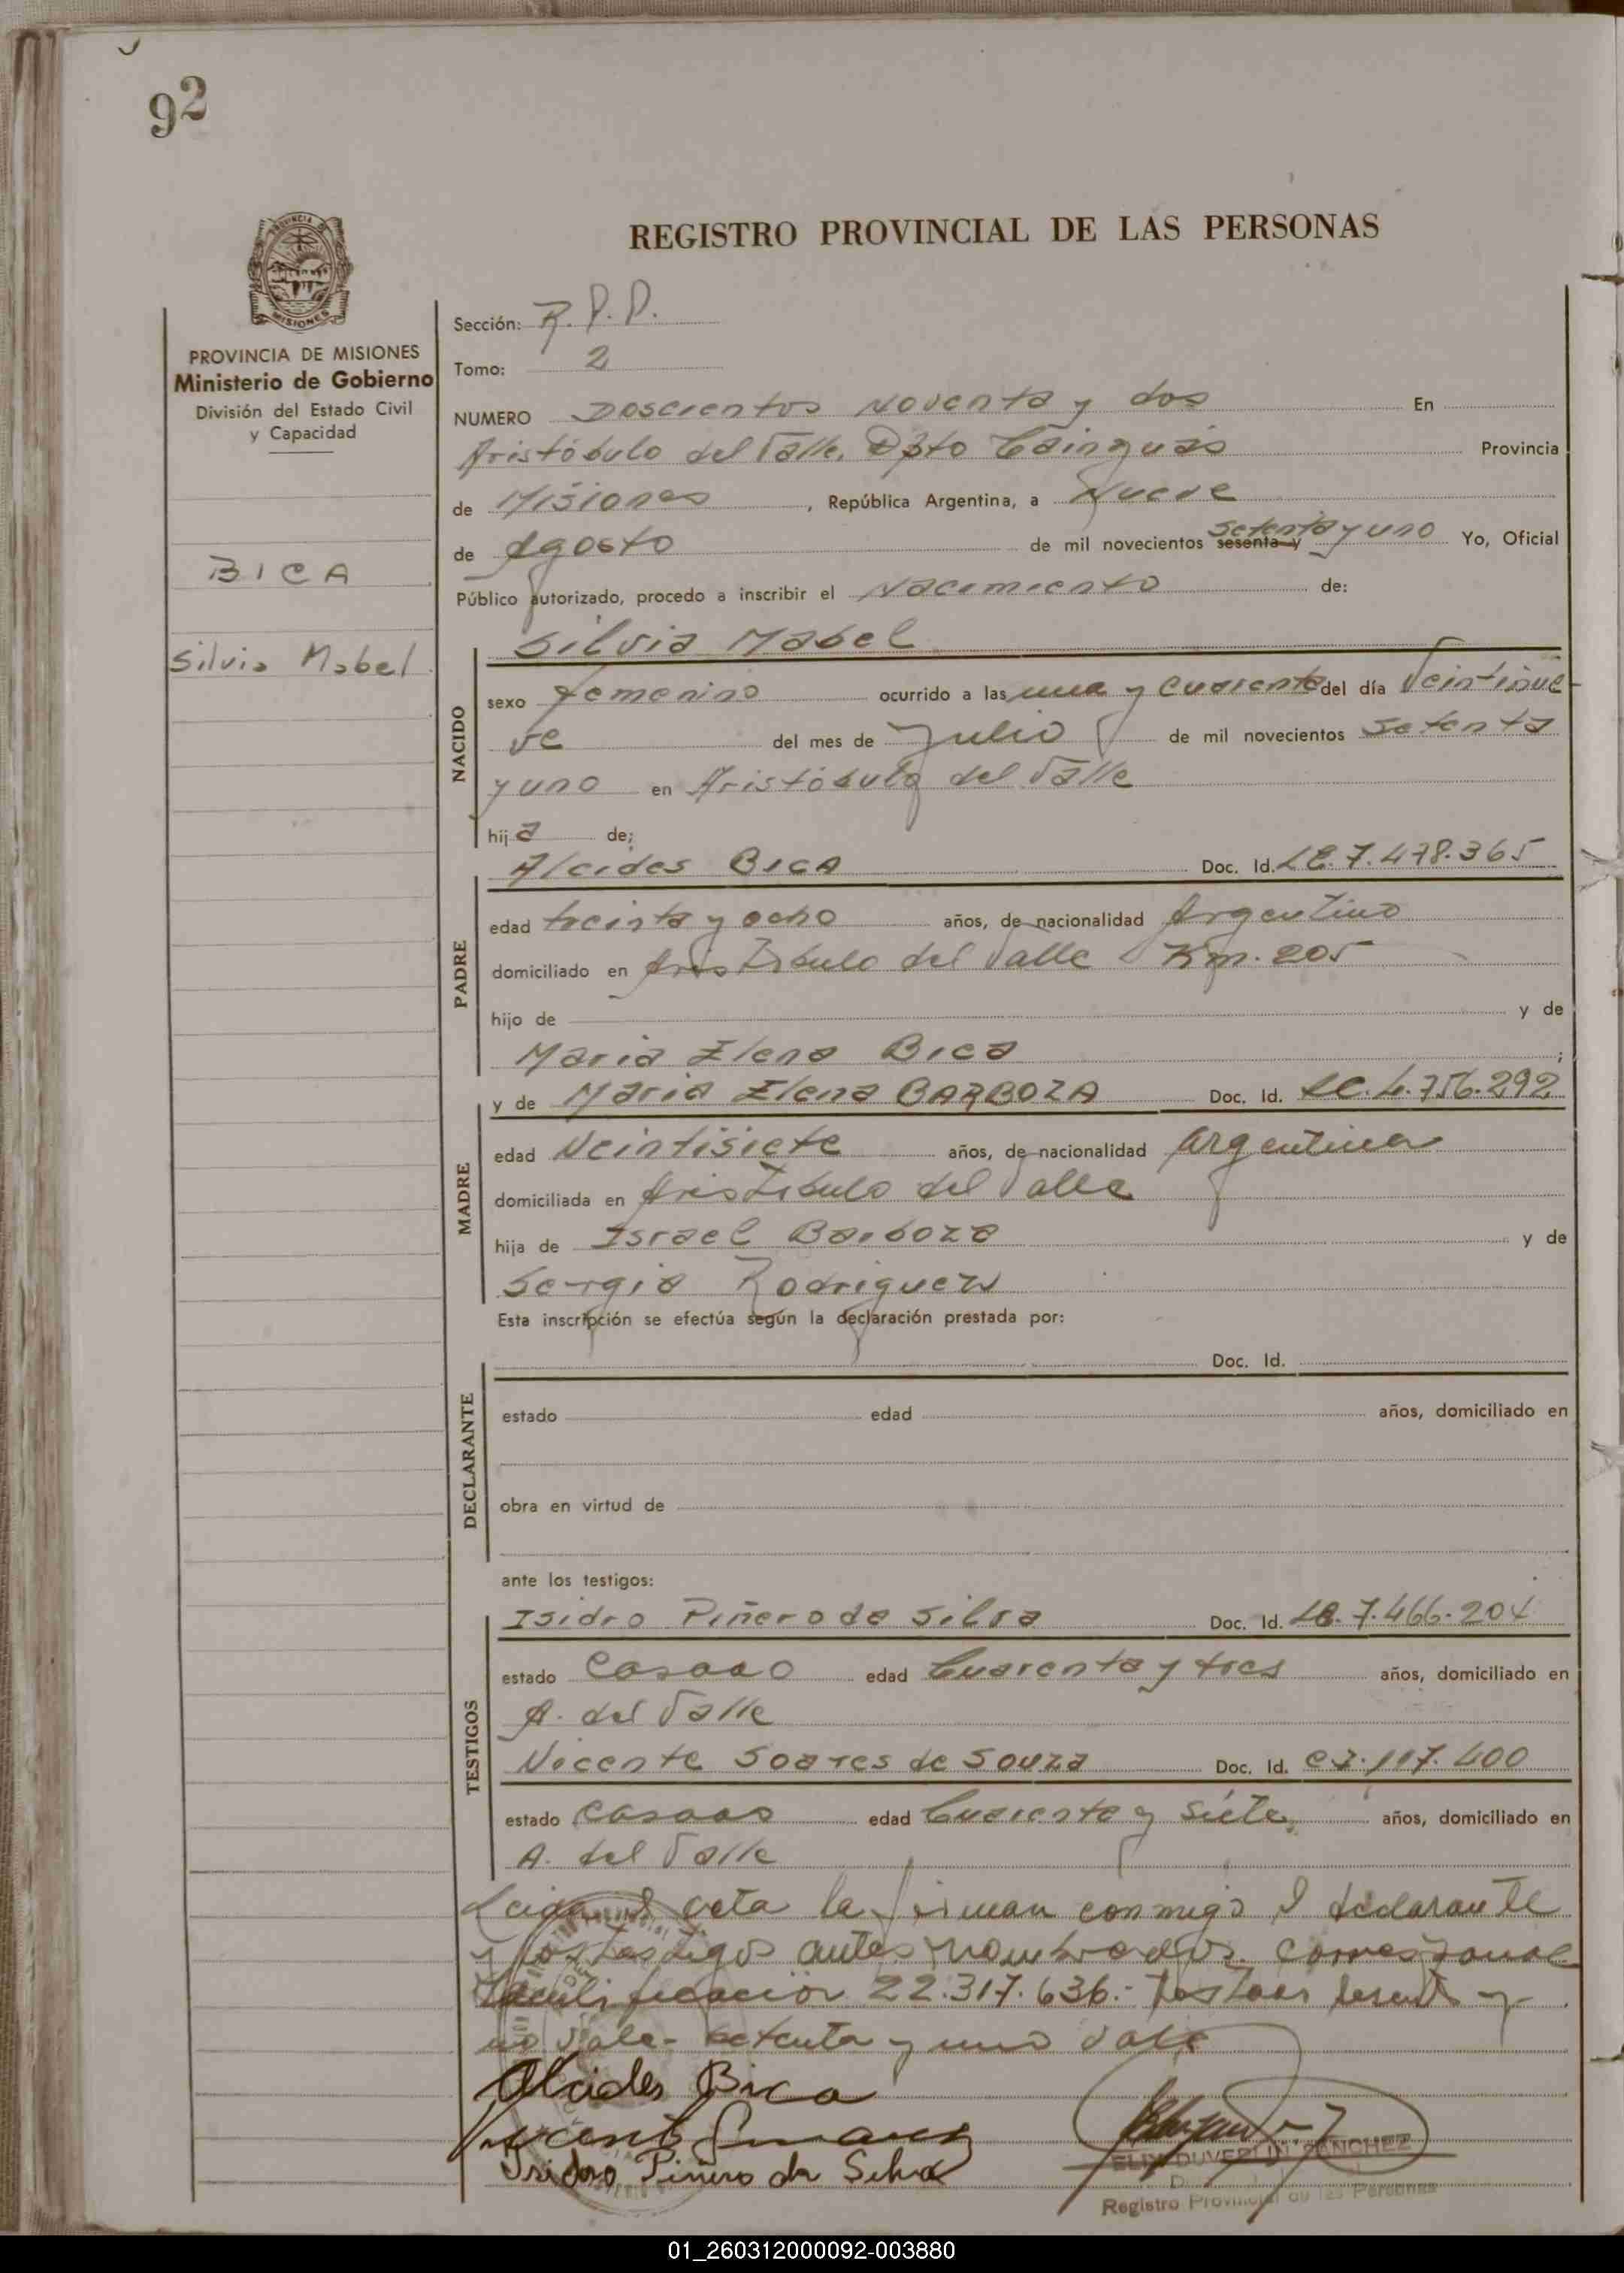 92
REGISTRO PROVINCIAL DE LAS PERSONAS
PROVINCIA DE MISIONES
Ministerio de Gobierno
División del Estado Civil
y Capacidad
BICA
Silvia Mabel
Sección: R.P.P.
Tomo: 2
NUMERO Doscientos Noventa y dos En
Aristóbulo del Valle, Dpto Cainguás Provincia
de Misiones, República Argentina, a Nueve
de Agosto de mil novecientos sesenta y setenta y uno Yo, Oficial
Público autorizado, procedo a inscribir el Nacimiento de:
Silvia Mabel
NACIDO
sexo femenino ocurrido a las una y cuarenta del día Veintinue
ve del mes de Julio de mil novecientos Setenta
y uno en Aristóbulo del Valle
hija de:
Alcides BICA Doc. Id. LE. 7.478.365
PADRE
edad treinta y ocho años, de nacionalidad Argentino
domiciliado en Aristóbulo del Valle Km. 205
hijo de y de
Maria Elena Bica;
y de Maria Elena BARBOZA Doc. Id. LC. 4.756.292
MADRE
edad Veintisiete años, de nacionalidad argentina
domiciliada en Aristóbulo del Valle
hija de Israel Barboza y de
Sergia Rodriguez
Esta inscripción se efectúa según la declaración prestada por:
Doc. Id.
DECLARANTE
estado edad años, domiciliado en
obra en virtud de
ante los testigos:
TESTIGOS
Isidro Piñero da Silva Doc. Id. LE. 7.466.204
estado Casado edad Cuarenta y tres años, domiciliado en
A. del Valle
Vicente Soares de Souza Doc. Id. 117.400
estado Casado edad Cuarenta y Siete años, domiciliado en
A. del Valle
Leida el acta la firman conmigo el declarante
y los testigos antes nombrados. Corresponde
22.317.636.- y
no vale- setenta y uno vale
Alcides Bica
Isidoro Piñero da Silva
DUVERLIN SANCHEZ
Registro Provincial de las Personas
01_260312000092-003880